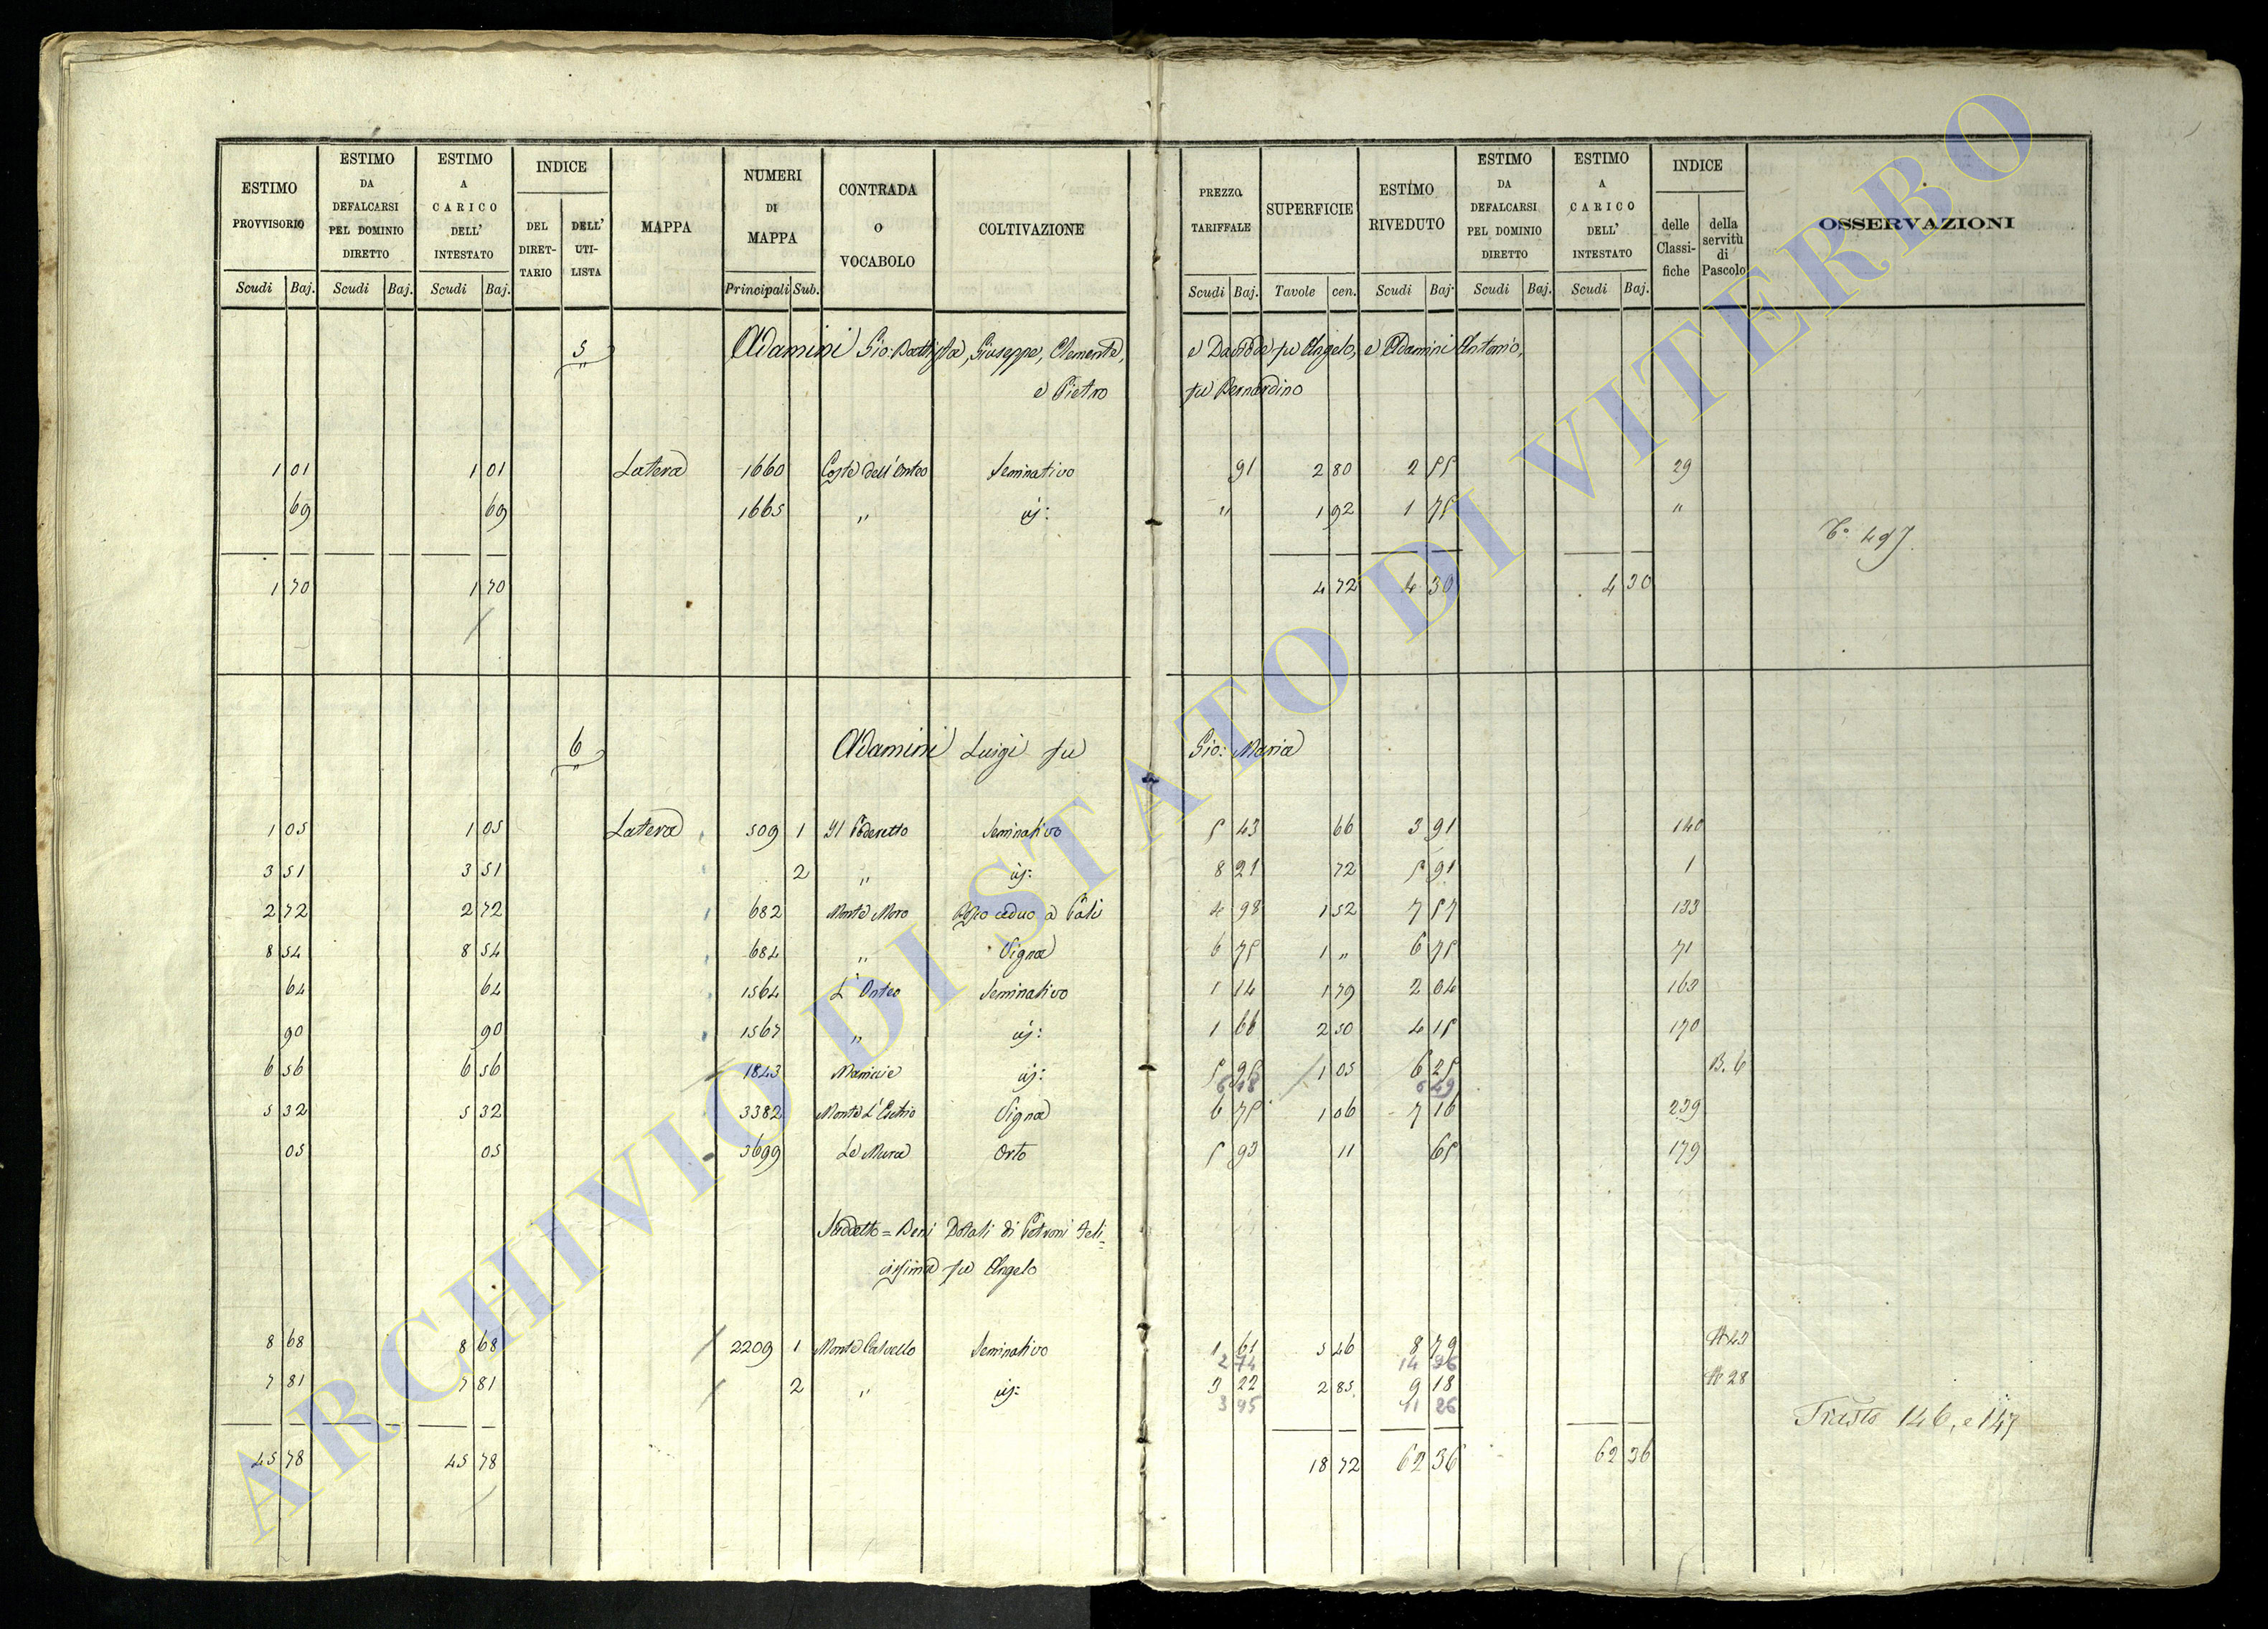 ESTIMO PROVVISORIO | ESTIMO DA DEFALCARSI PEL DOMINIO DIRETTO | ESTIMO A CARICO DELL' INTESTATO | INDICE | MAPPA | NUMERI DI MAPPA | CONTRADA O VOCABOLO | COLTIVAZIONE | PREZZO TARIFFALE | SUPERFICIE | ESTIMO RIVEDUTO | ESTIMO DA DEFALCARSI PEL DOMINIO DIRETTO | ESTIMO A CARICO DELL' INTESTATO | INDICE | OSSERVAZIONI
DEL DIRET-TARIO | DELL' UTI-LISTA | delle Classi-fiche | della servitù di Pascolo
Scudi Baj. | Scudi Baj. | Scudi Baj. | Principali Sub. | Scudi Baj. | Tavole cen. | Scudi Baj. | Scudi Baj. | Scudi Baj.
5 Adamini Gio: Battista, Giuseppe, Clemente, e Davide fu Angelo, e Adamini Antonio,
e Pietro fu Bernardino
1 01 | 1 01 | Latera | 1660 | Coste dell'Onteo | Seminativo | 91 | 2 80 | 2 55 | 29
69 | 69 | 1665 | " | id: | " | 1 92 | 1 75 | "
T.o 497.
1 70 | 1 70 | 4 72 | 4 30 | 4 30
6 Adamini Luigi fu Gio: Maria
1 05 | 1 05 | Latera | 509 | 1 | Il Poderetto | Seminativo | 5 43 | 66 | 3 91 | 140
3 51 | 3 51 | 2 | " | id: | 8 21 | 72 | 5 91 | 1
2 72 | 2 72 | 682 | Monte Moro | Bosco ceduo a Pali | 4 98 | 1 52 | 7 57 | 133
8 54 | 8 54 | 684 | " | Vigna | 6 75 | 1 " | 6 75 | 71
64 | 64 | 1564 | L'Onteo | Seminativo | 1 14 | 1 79 | 2 04 | 163
90 | 90 | 1567 | " | id: | 1 66 | 2 50 | 4 15 | 170
6 56 | 6 56 | 1843 | id: | 5 95 | 1 05 | 6 25 | B. 6
6 18 | 6 49
5 32 | 5 32 | 3382 | Monte | Vigna | 6 75 | 1 06 | 7 16 | 239
05 | 05 | 3699 | Le Mura | Orto | 5 93 | 11 | 65 | 179
Suddetto = Beni Dotali di Petroni Feli=
cissima fu Angelo
8 68 | 8 68 | 2209 | 1 | Monte Calvello | Seminativo | 1 61 | 5 46 | 8 79 | A 43
2 74 | 14 96
7 81 | 7 81 | 2 | " | id: | 3 22 | 2 85 | 9 18 | A 28
3 95 | 11 26
146, e 147
45 78 | 45 78 | 18 72 | 62 36 | 62 36
ARCHIVIO DI STATO DI VITERBO